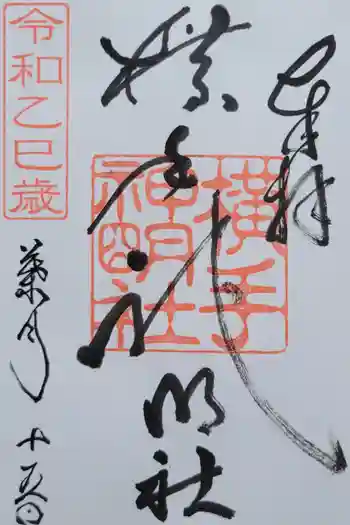 奉拝
横手神明社
横手
神明社
令和乙巳歳
葉月
十五日